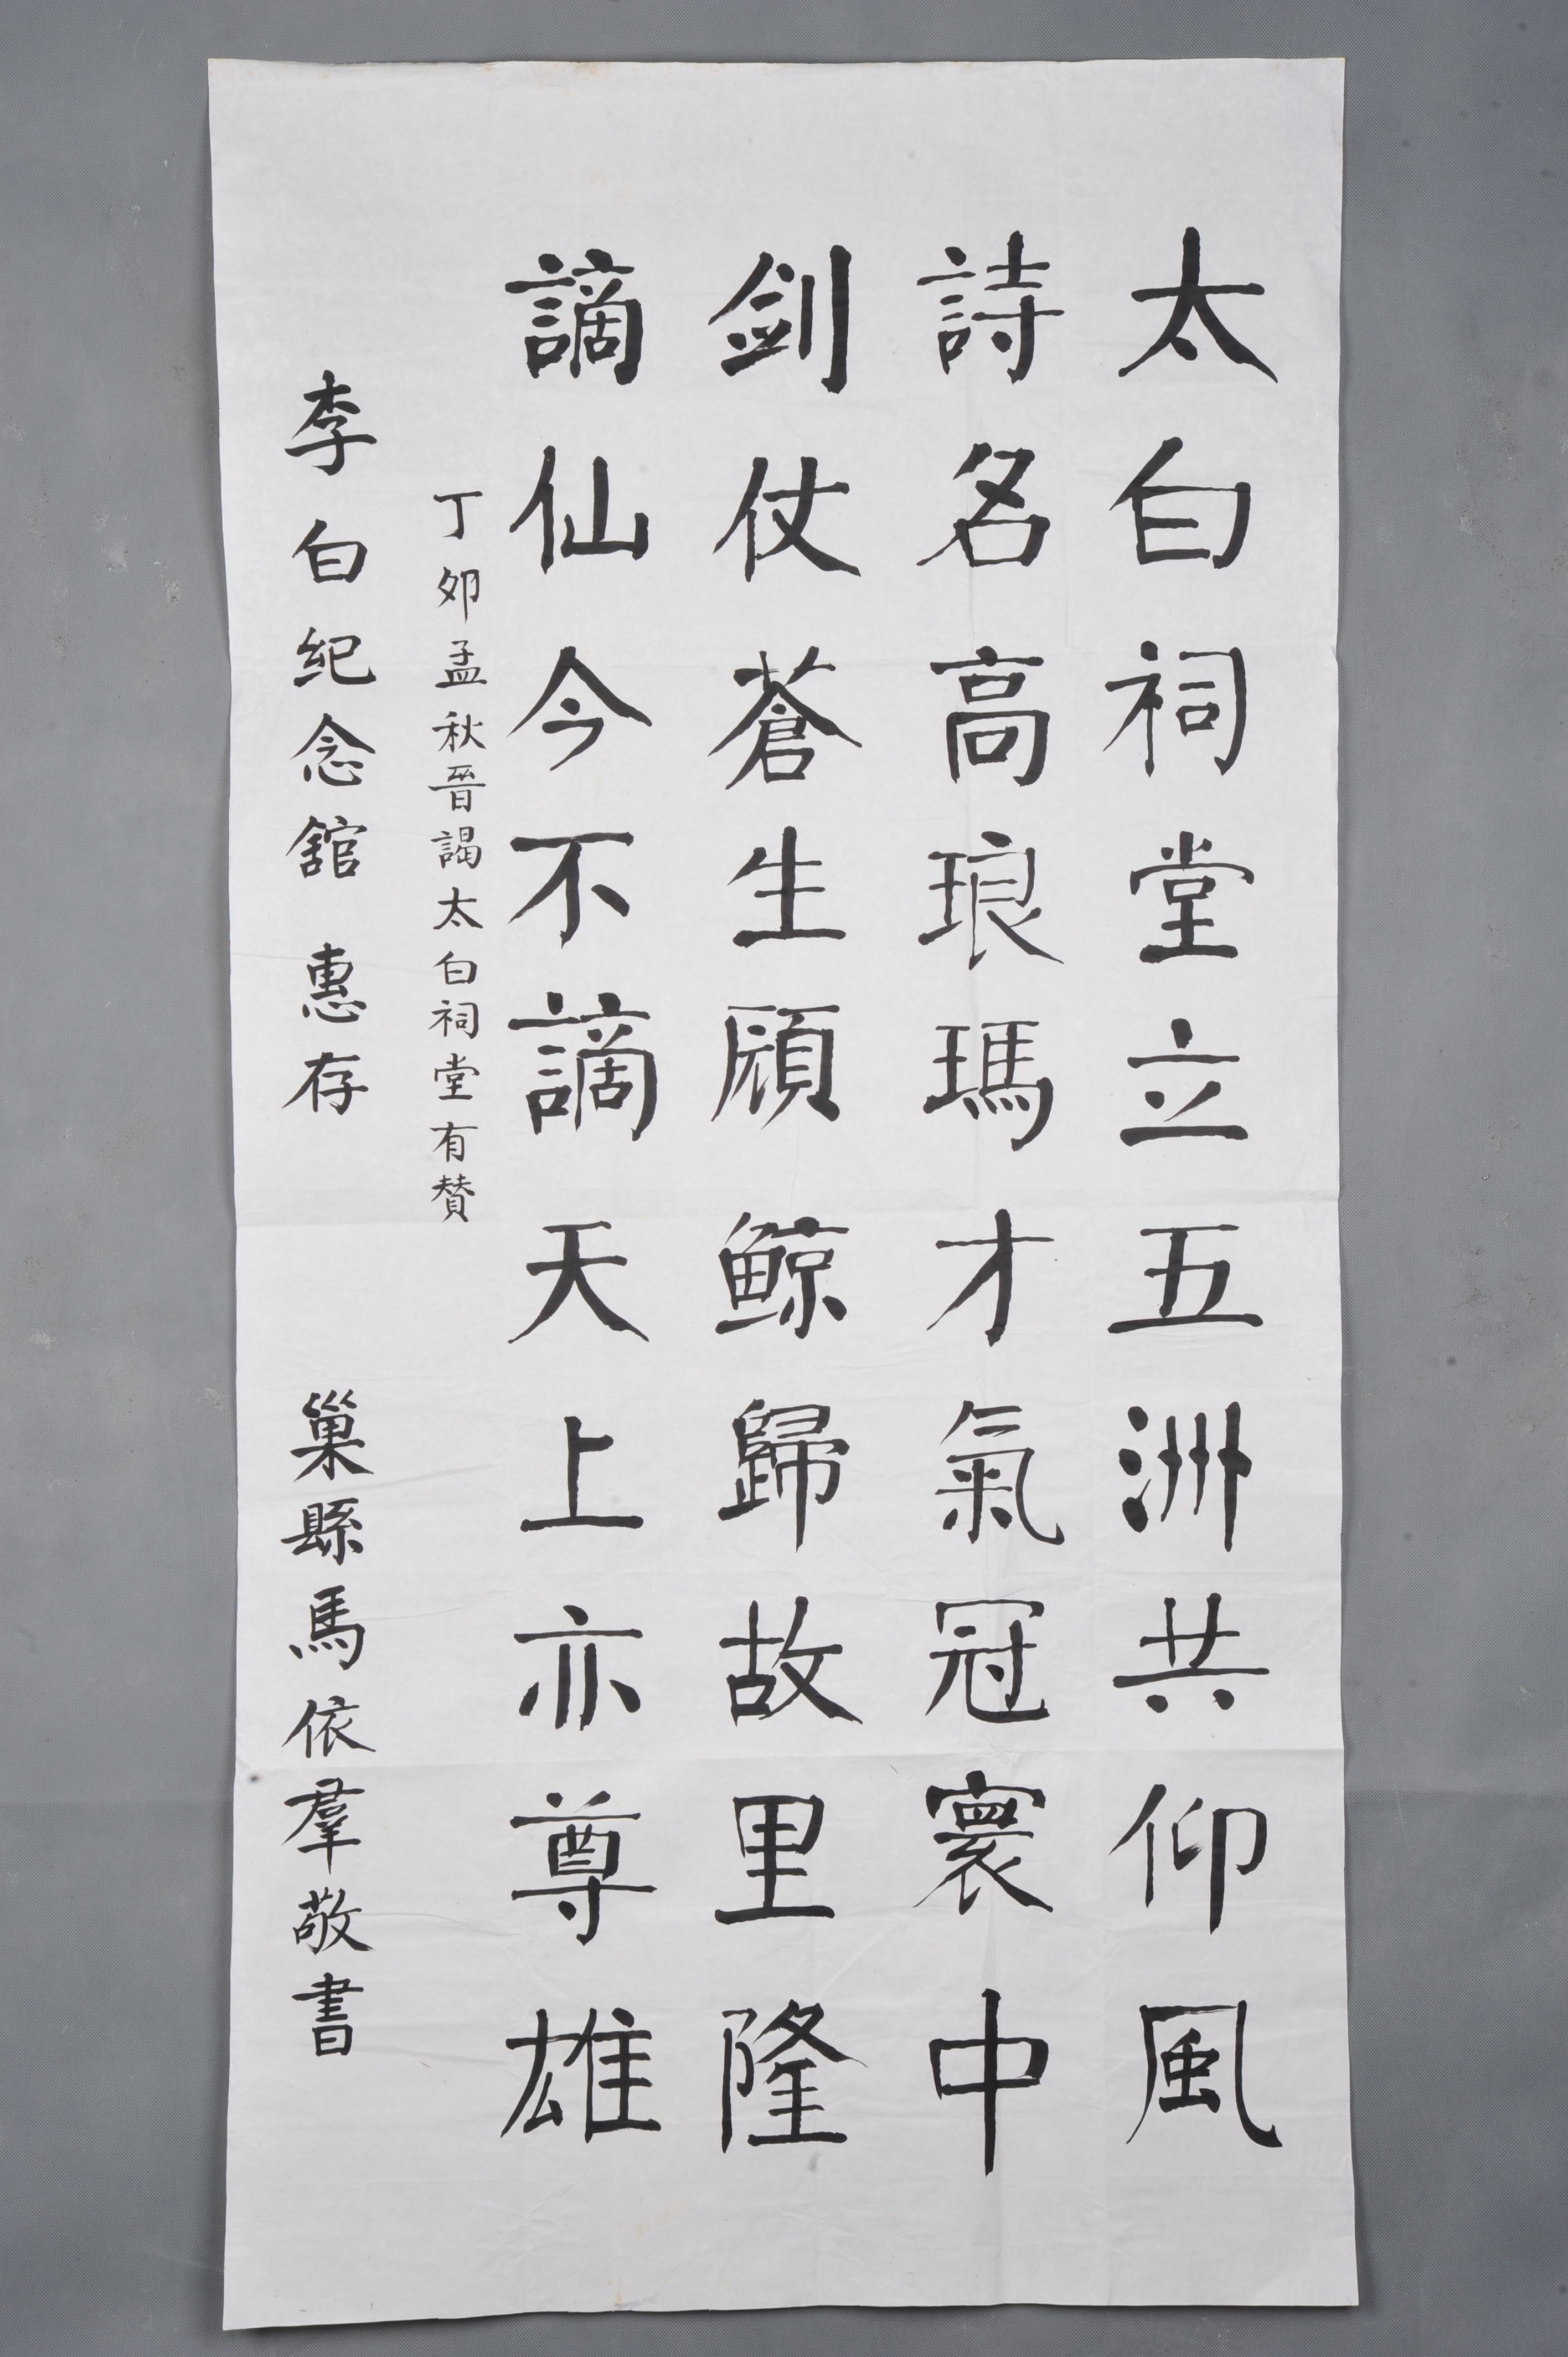 太白祠堂立五洲共仰風
詩名高琅瑪才氣冠寰中
劍仗蒼生頋鲸歸故里隆
謫仙今不謫天上亦尊雄
丁夘孟秋晉謁太白祠堂有赞
李白纪念舘 惠存 巢縣馬依羣敬書